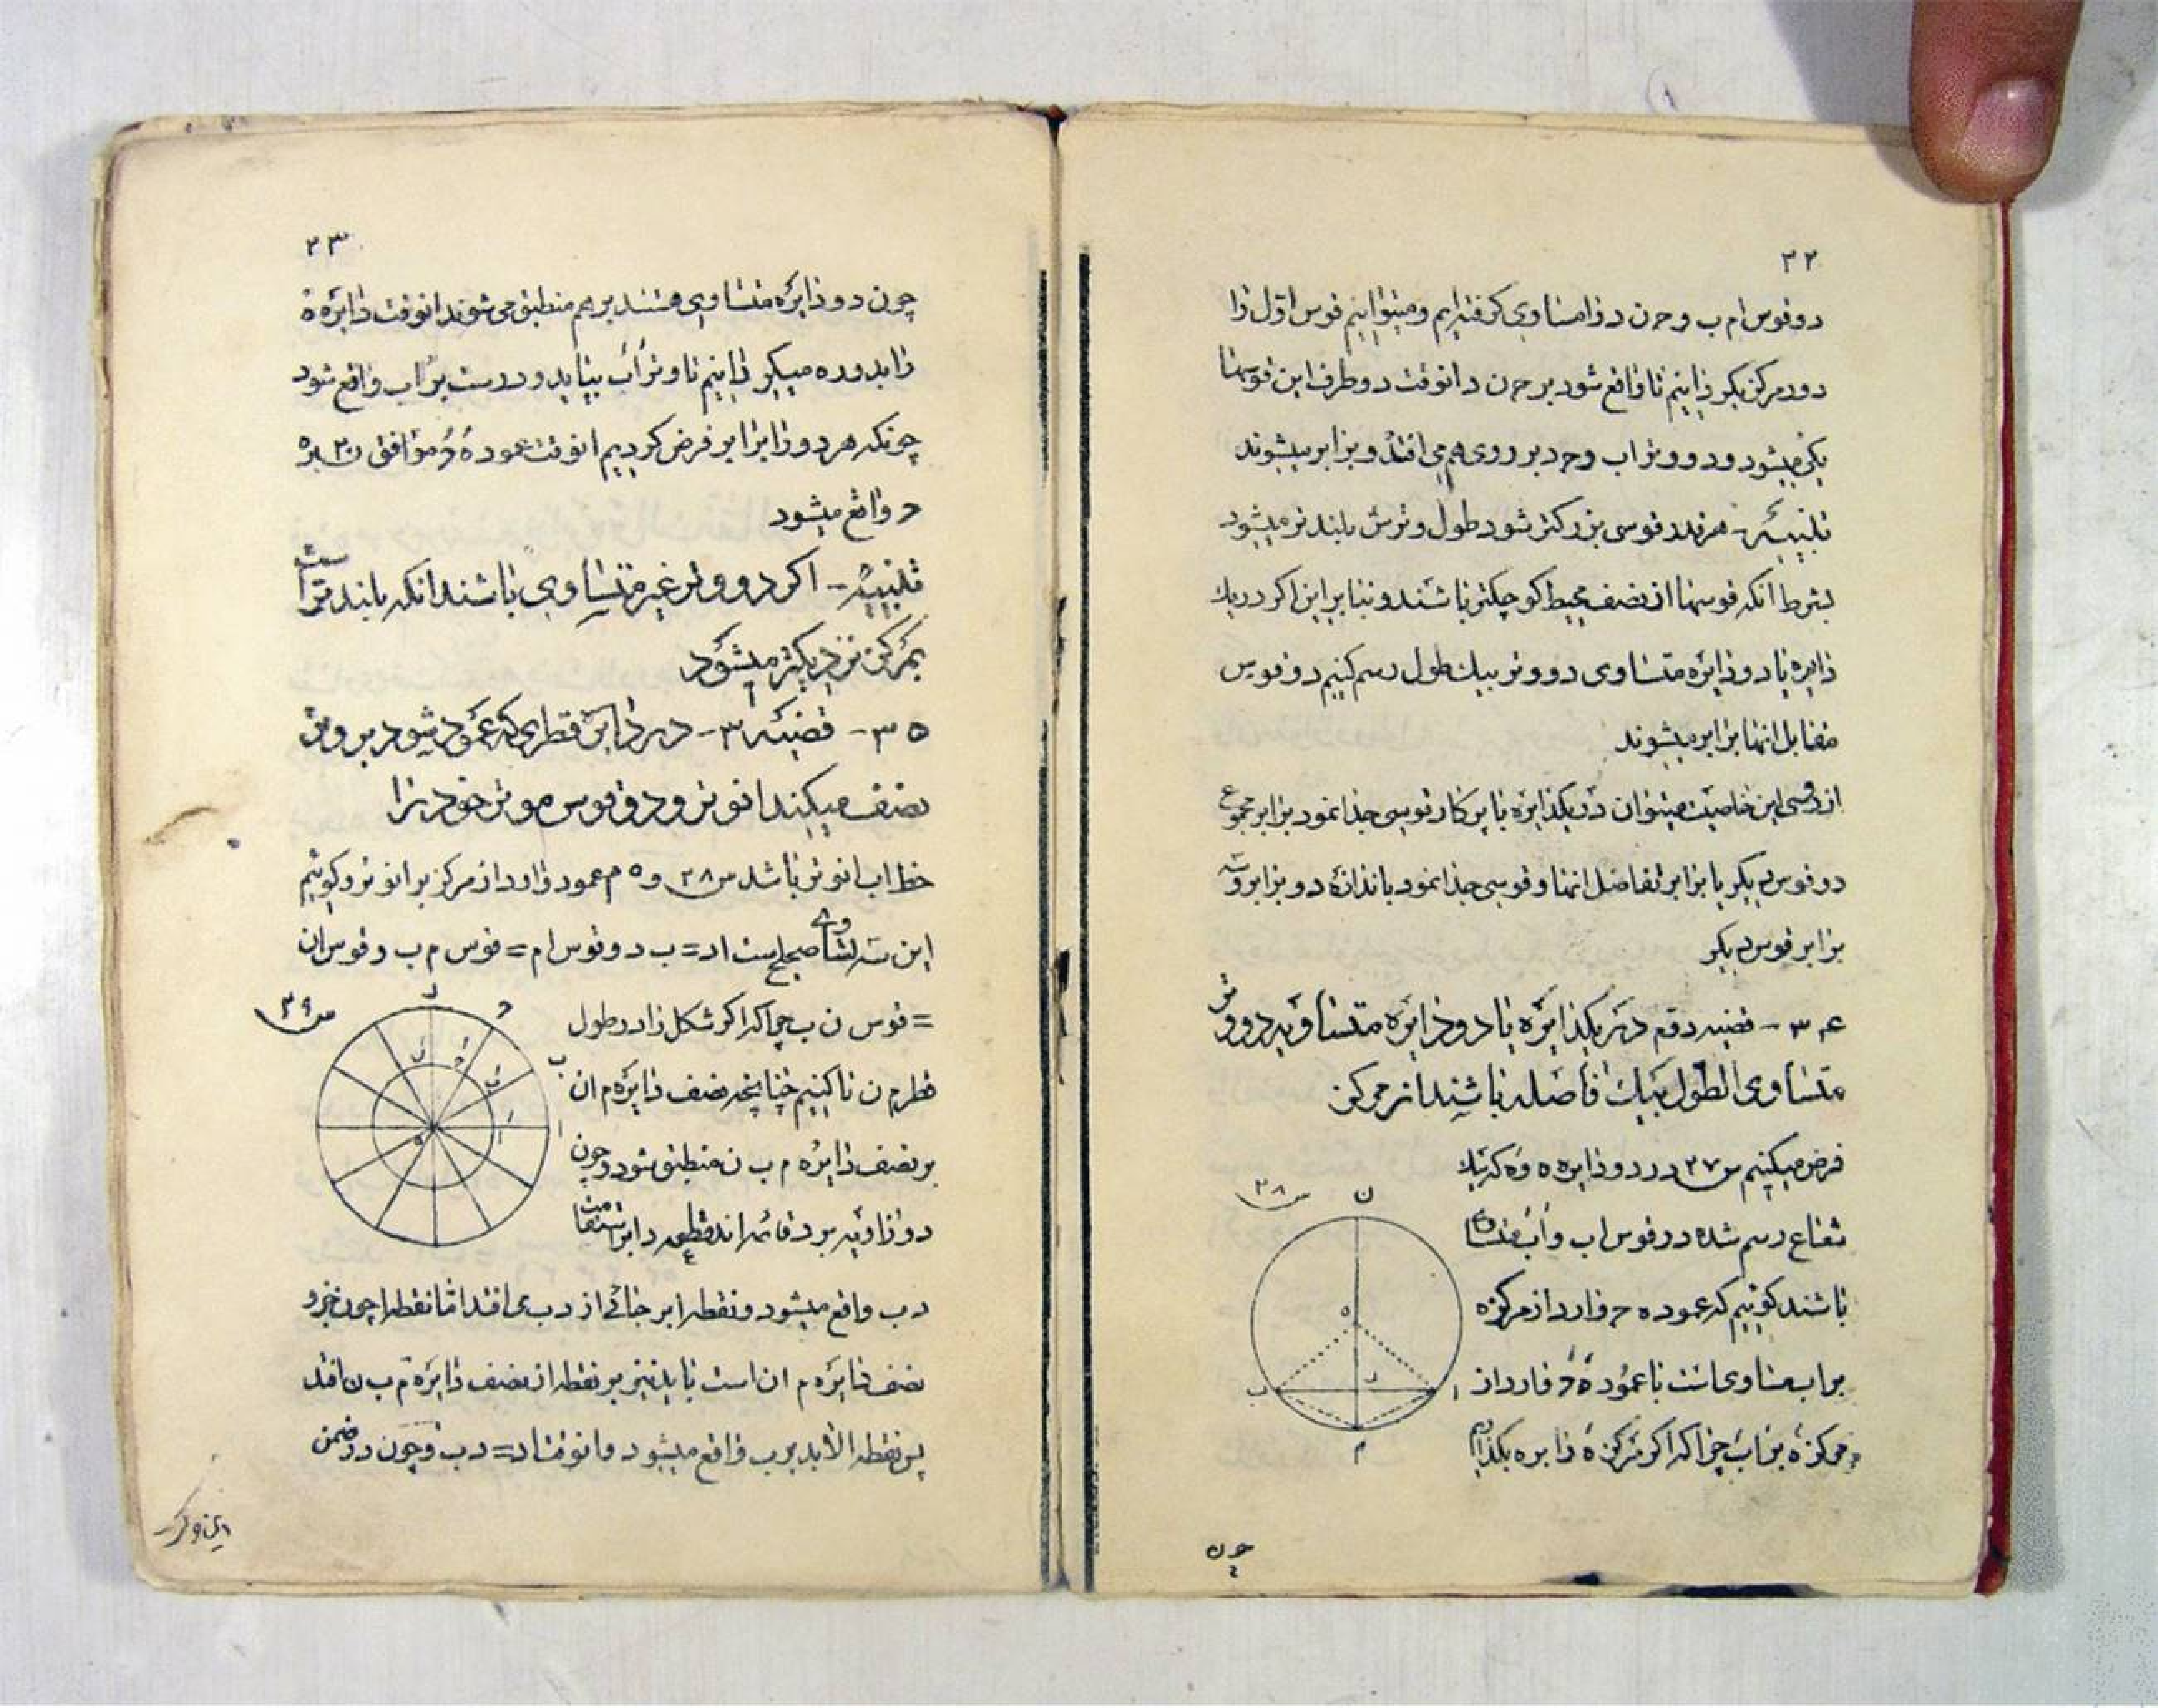 ۳۲
دو قوس ام ب و ح ن د را مساوی گرفته‌ایم و میتوانیم قوس اول را
دور مرکز بگردانیم تا واقع شود بر ح ن د انوقت دو طرف این قوسها
یکی میشود و دو وتر اب و ح د بر روی هم می افتند و برابر میشوند
تنبیه - هر قدر قوسی بزرکتر شود طول وترش بلندتر میشود
بشرط آنکه قوسها از نصف محیط کوچکتر باشند و بنابراین اکر در یک
دایره یا دو دایره متساوی دو وتر بیک طول رسم کنیم دو قوس
مقابل انها برابر میشوند
از روی این خاصیت میتوان در یکدایره با پرکار قوسی جدا نمود برابر مجموع
دو قوس دیکر یا برابر تفاضل انها و قوسی جدا نمود باندازه دو برابر و سه
برابر قوس دیکر
۳۴ - قضیه دوم در یکدایره یا دو دایره متساویه دو وتر
متساوی الطول بیک فاصله باشند از مرکز
فرض میکنیم س ۳۷ در دو دایره ه و هَ که بیک
شعاع رسم شده دو قوس اب و اَبَ متساوی
باشند کوئیم که عمود ه ح وارد از مرکز ه
بر اب مساوی است با عمود هَ حَ وارد از
مرکز هَ بر اَبَ چرا که اکر مرکز هَ دایره بکذاریم
س ۳۸
ن
ه
د
ب
ا
م
چون
۳۳
چون دو دایره متساوی هستند بر هم منطبق می شوند انوقت دایره هَ
را بدور ه میگردانیم تا وتر اَبَ بیاید و درست بر اب واقع شود
چونکه هر دو را برابر فرض کردیم انوقت عمود هَ حَ موافق بر ه
ح واقع میشود
تنبیه - اکر دو وتر غیر متساوی باشند انکه بلندتر است
بمرکز نزدیکتر میشود
۳۵ - قضیه ۳ - در دایره قطری که عمود شود بر وتر
نصف میکند انوتر و دو قوس موتر خود را
خط اب انوتر باشد س ۳۸ و ه م عمود وارد از مرکز بر انوتر و کوئیم
این سه تساوی صحیح است اد = ب د و قوس ام = قوس م ب و قوس ان
= قوس ن ب چرا که اکر شکل را در طول
قطر م ن تا کنیم چنانچه نصف دایره م ان
بر نصف دایره م ب ن منطبق شود و چون
دو زاویه بر د قائمه اند
د ب واقع میشود و نقطه ا بر جائی از د ب می افتد اما نقطه ا چون جزو
نصف دایره م ان است باید نیز بر نقطه از نصف دایره م ب ن افتد
پس نقطه ا لابد بر ب واقع میشود و انوقت اد = د ب و چون در ضمن
س ۳۶
د
ح
ب
ا
ه